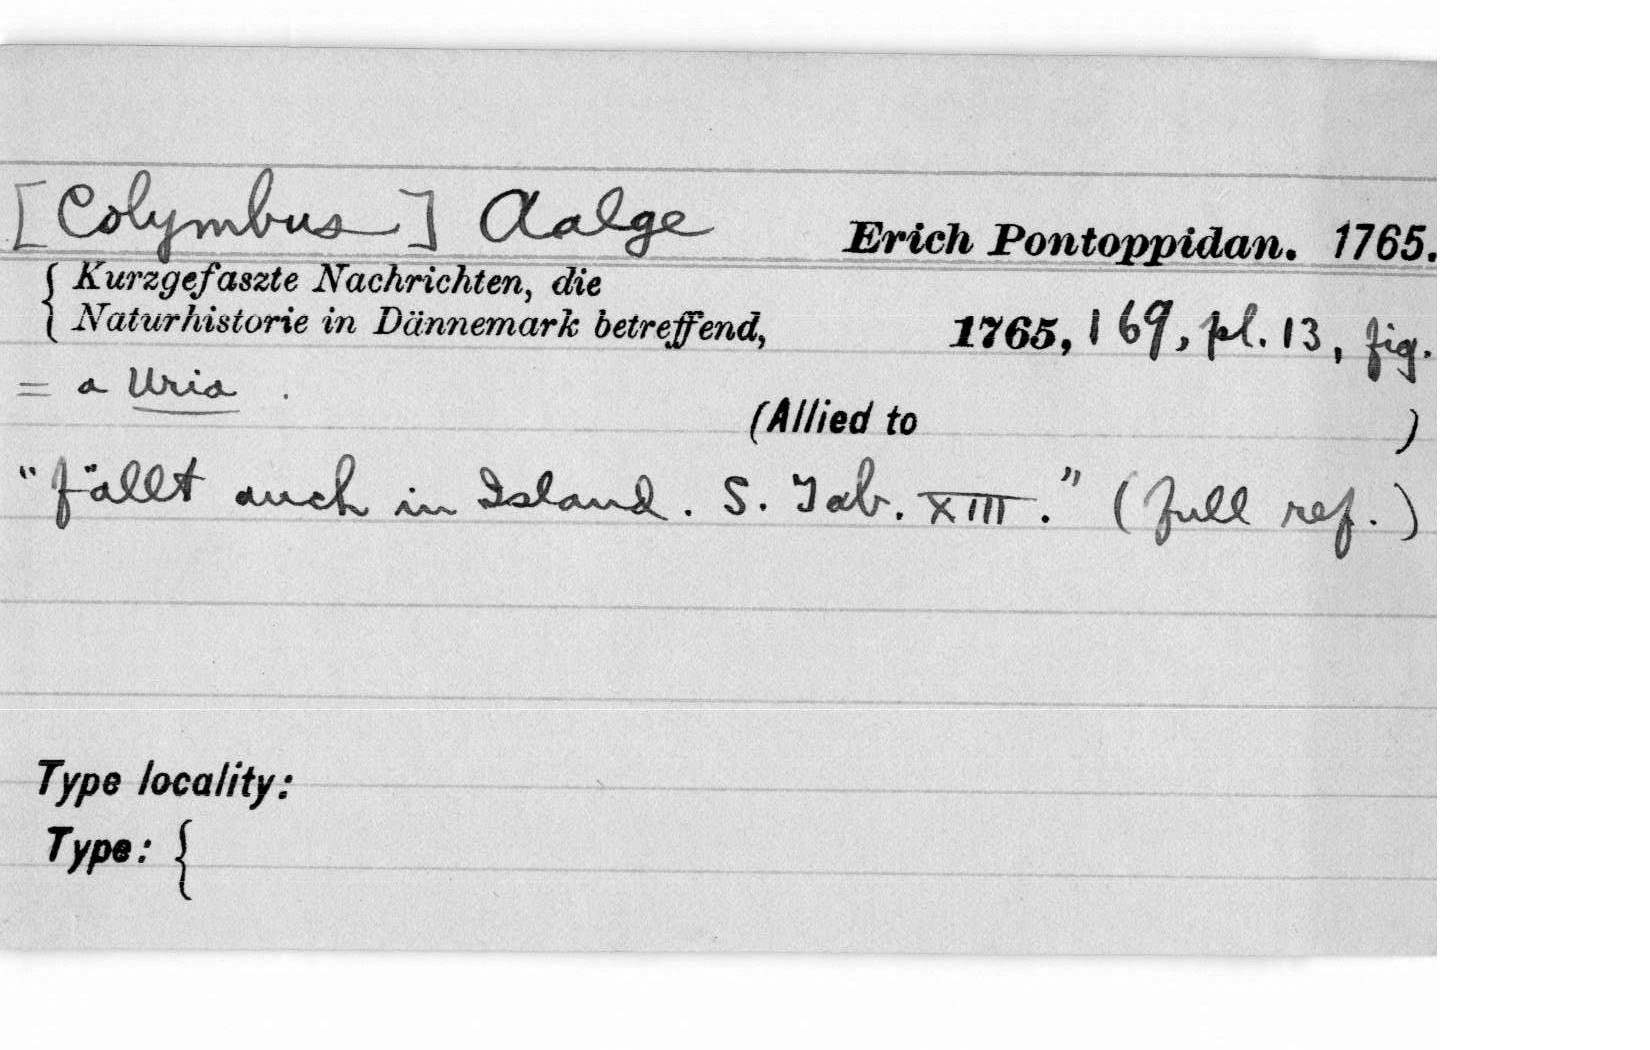 [Colymbus] Aalge Erich Pontoppidan. 1765.
{ Kurzgefaszte Nachrichten, die
Naturhistorie in Dännemark betreffend, 1765, 169, pl. 13, fig.
= a Uria .
(Allied to )
"fällt auch in Island. S. Tab. XIII." (full ref.)
Type locality:
Type: {